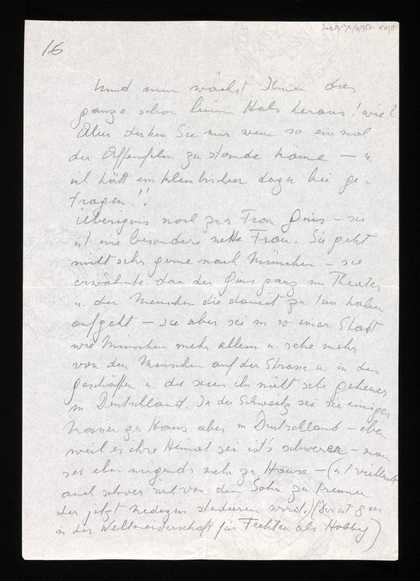 16
Und nun wächst Ihnen das
ganze schon beim Hals heraus! wie?
Aber denken Sie nur wenn so einmal
der Offenfilm zu stande käme — u
ich hätt ein klein bischen dazu bei ge-
tragen!!
Übrigens noch zur Frau Gins — sie
ist eine besonders nette Frau. Sie geht
nicht sehr gerne nach München — sie
erwähnte dass der ganz im Theater
u. den Menschen die damit zu tun haben
aufgeht — sie aber sei in so einer Stadt
wie München mehr allein u. sehe mehr
von den Menschen auf der Strasse u. in den
Geschäften u. die seien ihr nicht sehr geheuer
in Deutschland. In der Schweitz sei sie einiger
massen zu Haus aber in Deutschland — eben
weil es ihre Heimat sei ist's schwerer — man
sei eben nirgends mehr zu Hause — (ist vielleicht
auch schwer sich von dem Sohn zu trennen
der jetzt Medizin studieren wird.) (der ist
in der Weltmeisterschaft für Fechten als Hobby)